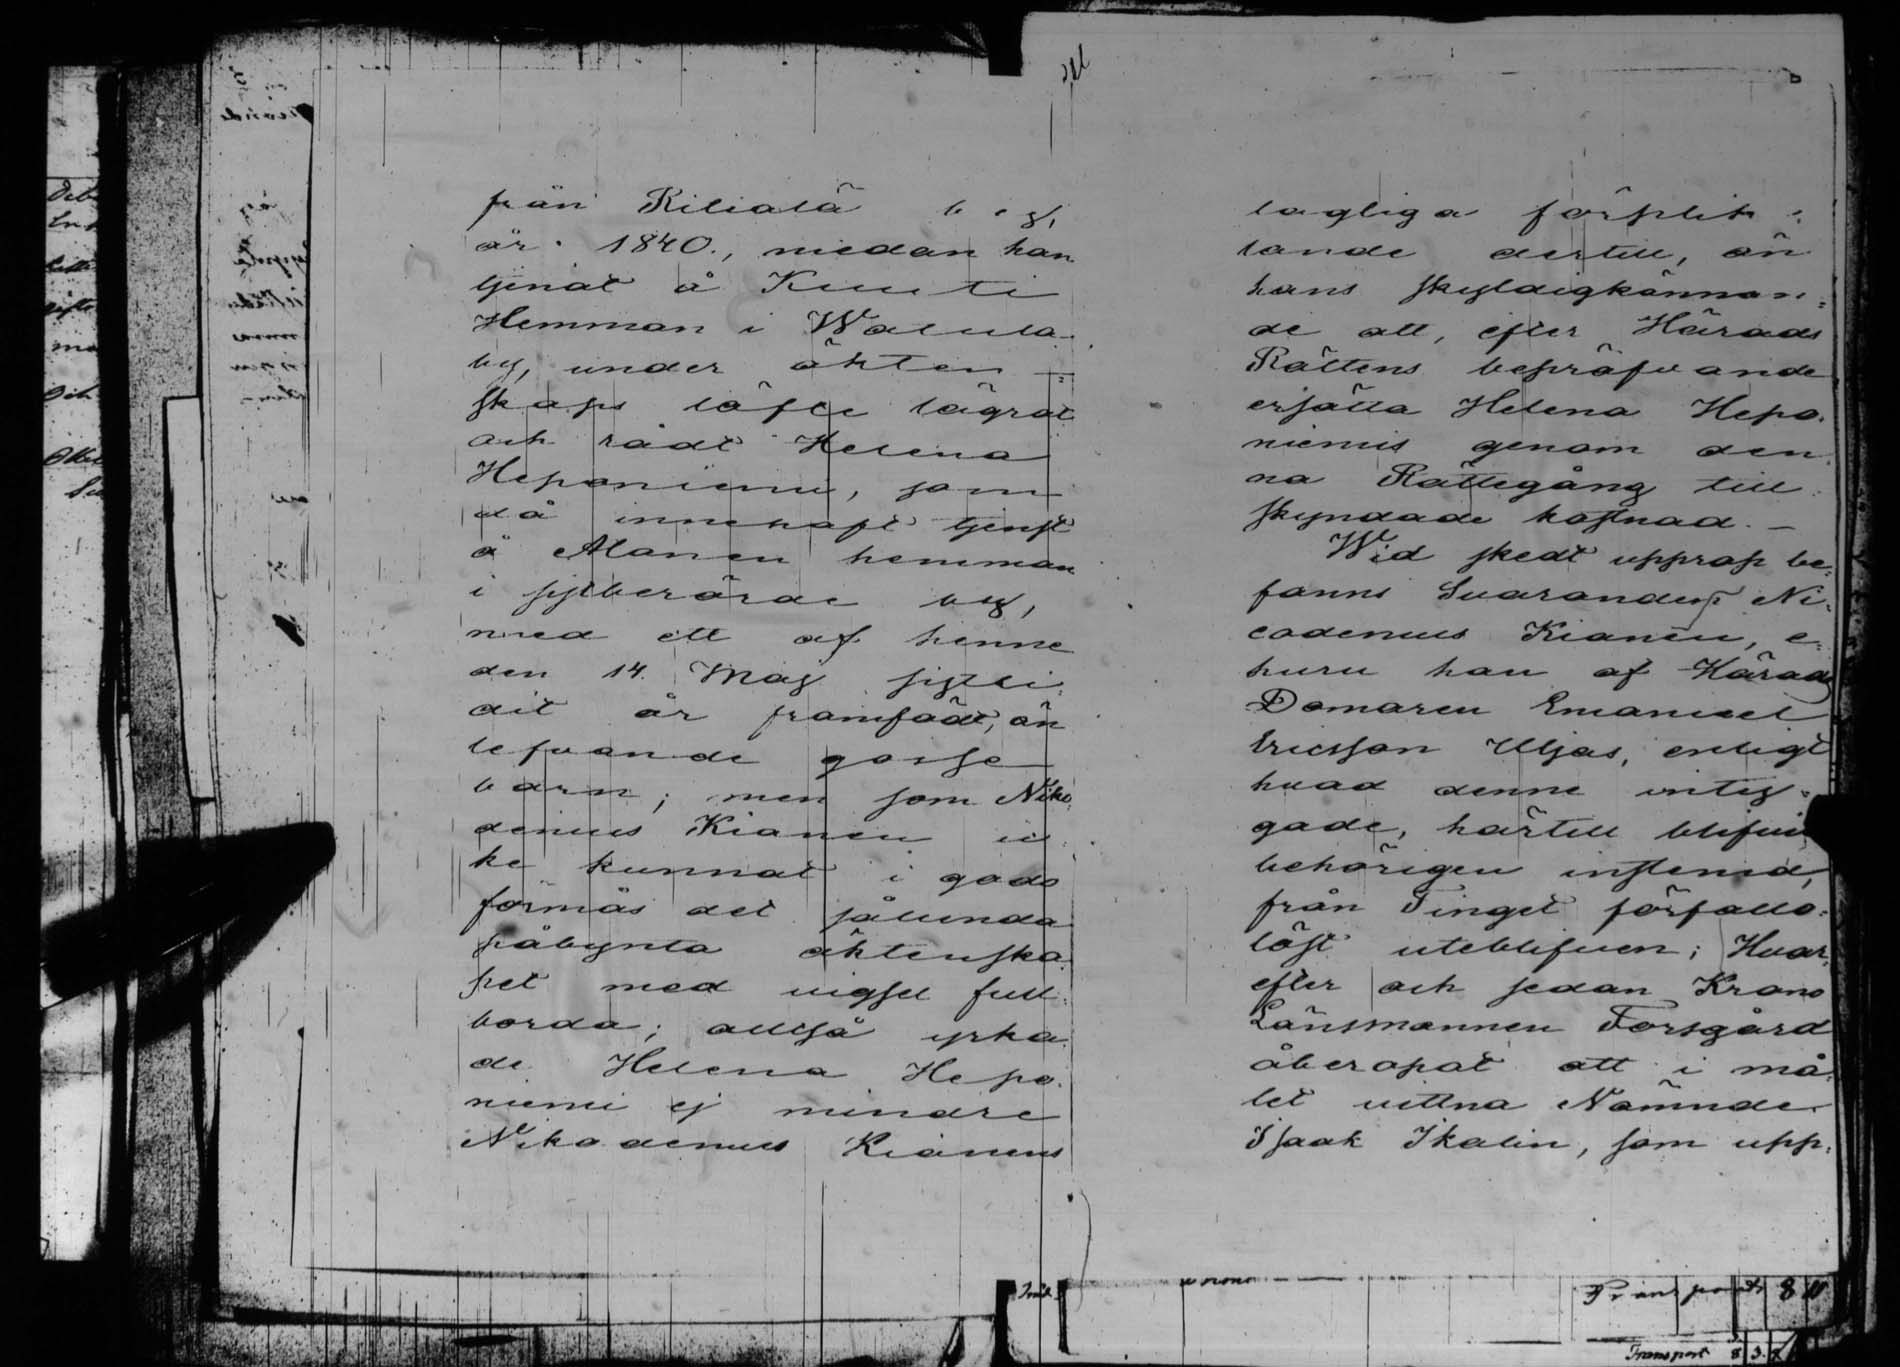 från Kiliala by,
år 1840., medan han
tjenat å Kuuti
Hemman i Watula
by, under äkten=
skaps löfte lägrat
och rådt Helena
Heponiemi, som
då innehaft tjenst
å Alanen hemman
i sistberörde by,
med ett af henne
den 14. Maj sistli=
dit år framfödt, än
lefvande gosse
barn; men som Niko=
demus Kianen ic=
ke kunnat i godo
förmås det sålunda
påbynta äktenska=
pet med vigsel full=
borda; alltså yrka=
de Helena Hepo=
niemi ej mindre
Nikodemus Kianens
lagliga förplik=
tande dertill, än
hans skyldigkännan=
de att, efter Härads
Rättens bepröfvande
ersätta Helena Hepo=
niemis genom den=
na Rättegång till=
skyndade kostnad. —
Wid skedt upprop be=
fanns Svaranden Ni=
codemus Kianen, e=
huru han af Härads
Domaren Emanuel
Ericsson Uljas, enligt
hvad denne intyg=
gade, härtill blifvit
behörigen instemd,
från Tinget förfallo=
löst uteblifven; Hvar=
efter och sedan Krono
Länsmannen Forsgård
åberopat att i må=
let vittna Nämnde=
Isaak Ikalin, som upp=
Transport 8
Transport 8 3